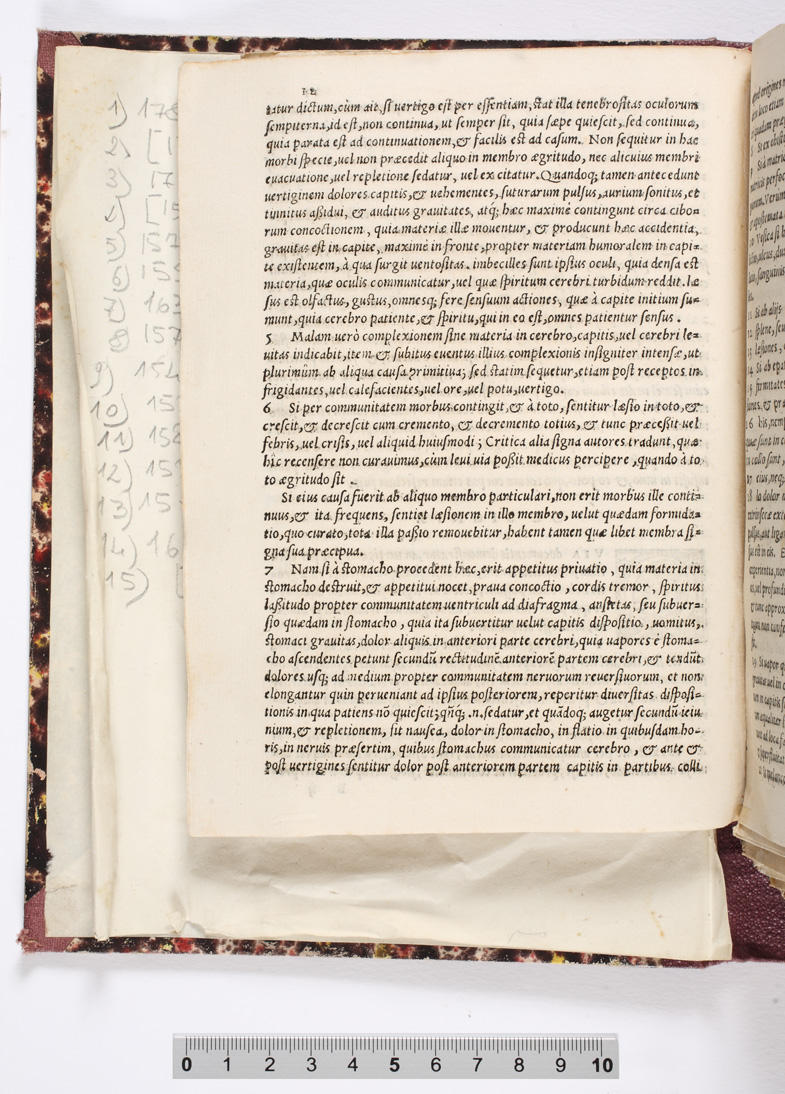 12
tatur dictum, cùm ait, ſi uertigo eſt per eſſentiam, ſtat illa tenebroſitas oculorum
ſempiterna, id eſt, non continua, ut ſemper ſit, quia ſæpe quieſcit, ſed continua,
quia parata eſt ad continuationem, & facilis eſt ad caſum. Non ſequitur in hac
morbi ſpecie, uel non præcedit aliquo in membro ægritudo, nec alicuius membri
euacuatione, uel repletione ſedatur, uel excitatur. Quandoq; tamen antecedunt
uertiginem dolores capitis, & uehementes, ſuturarum pulſus, aurium ſonitus, et
tinnitus aßidui, & auditus grauitates, atq; hæc maximè contingunt circa cibo=
rum concoctionem, quia materiæ illæ mouentur, & producunt hæc accidentia,
grauitas eſt in capite, maximè in fronte, propter materiam humoralem in capi=
te exiſtentem, à qua ſurgit uentoſitas. imbecilles ſunt ipſius oculi, quia denſa eſt
materia, quæ oculis communicatur, uel quæ ſpiritum cerebri turbidum reddit. læ
ſus eſt olfactus, guſtus, omnesq; fere ſenſuum actiones, quæ à capite initium ſu=
munt, quia cerebro patiente, & ſpiritu, qui in eo eſt, omnes patiuntur ſenſus.
5 Malam uerò complexionem ſine materia in cerebro, capitis, uel cerebri le=
uitas indicabit, item & ſubitus euentus illius complexionis inſigniter intenſæ, ut
plurimùm ab aliqua cauſa primitiua; ſed ſtatim ſequetur, etiam poſt receptos in
frigidantes, uel calefacientes, uel ore, uel potu, uertigo.
6 Si per communitatem morbus contingit, & à toto, ſentitur læſio in toto, &
creſcit, & decreſcit cum cremento, & decremento totius, & tunc præceßit uel
febris, uel criſis, uel aliquid huiuſmodi; Critica alia ſigna autores tradunt, quæ
hîc recenſere non curauimus, cùm leui uia poßit medicus percipere, quando à to
to ægritudo ſit.
Si eius cauſa fuerit ab aliquo membro particulari, non erit morbus ille conti=
nuus, & ita frequens, ſentiet læſionem in illo membro, uelut quædam formida=
tio, quo curato, tota illa paßio remouebitur, habent tamen quæ libet membra ſi=
gna ſua præcipua.
7 Nam ſi à ſtomacho procedent hæc, erit appetitus priuatio, quia materia in
ſtomacho deſtruit, & appetitui nocet, praua concoctio, cordis tremor, ſpiritus
laßitudo propter communitatem uentriculi ad diafragma, anſietas, ſeu ſubuer=
ſio quædam in ſtomacho, quia ita ſubuertitur uelut capitis diſpoſitio, uomitus,
ſtomaci grauitas, dolor aliquis in anteriori parte cerebri, quia uapores è ſtoma=
cho aſcendentes petunt ſecundũ rectitudinẽ anteriorẽ partem cerebri, & tendũt
dolores uſq; ad medium propter communitatem neruorum reuerſiuorum, et non
elongantur quin perueniant ad ipſius poſteriorem, reperitur diuerſitas diſpoſi=
tionis in qua patiens nõ quieſcit; qñq; .n. ſedatur, et quãdoq; augetur ſecundũ ieiu
nium, & repletionem, fit nauſea, dolor in ſtomacho, inflatio in quibuſdam ho=
ris, in neruis præſertim, quibus ſtomachus communicatur cerebro, & ante &
poſt uertigines ſentitur dolor poſt anteriorem partem capitis in partibus colli
1) 178
5) 157
7) 163
8) 157
9) 154
10) 15
11) 158
12) 15
13) 15
14) 16
15) [
0 1 2 3 4 5 6 7 8 9 10